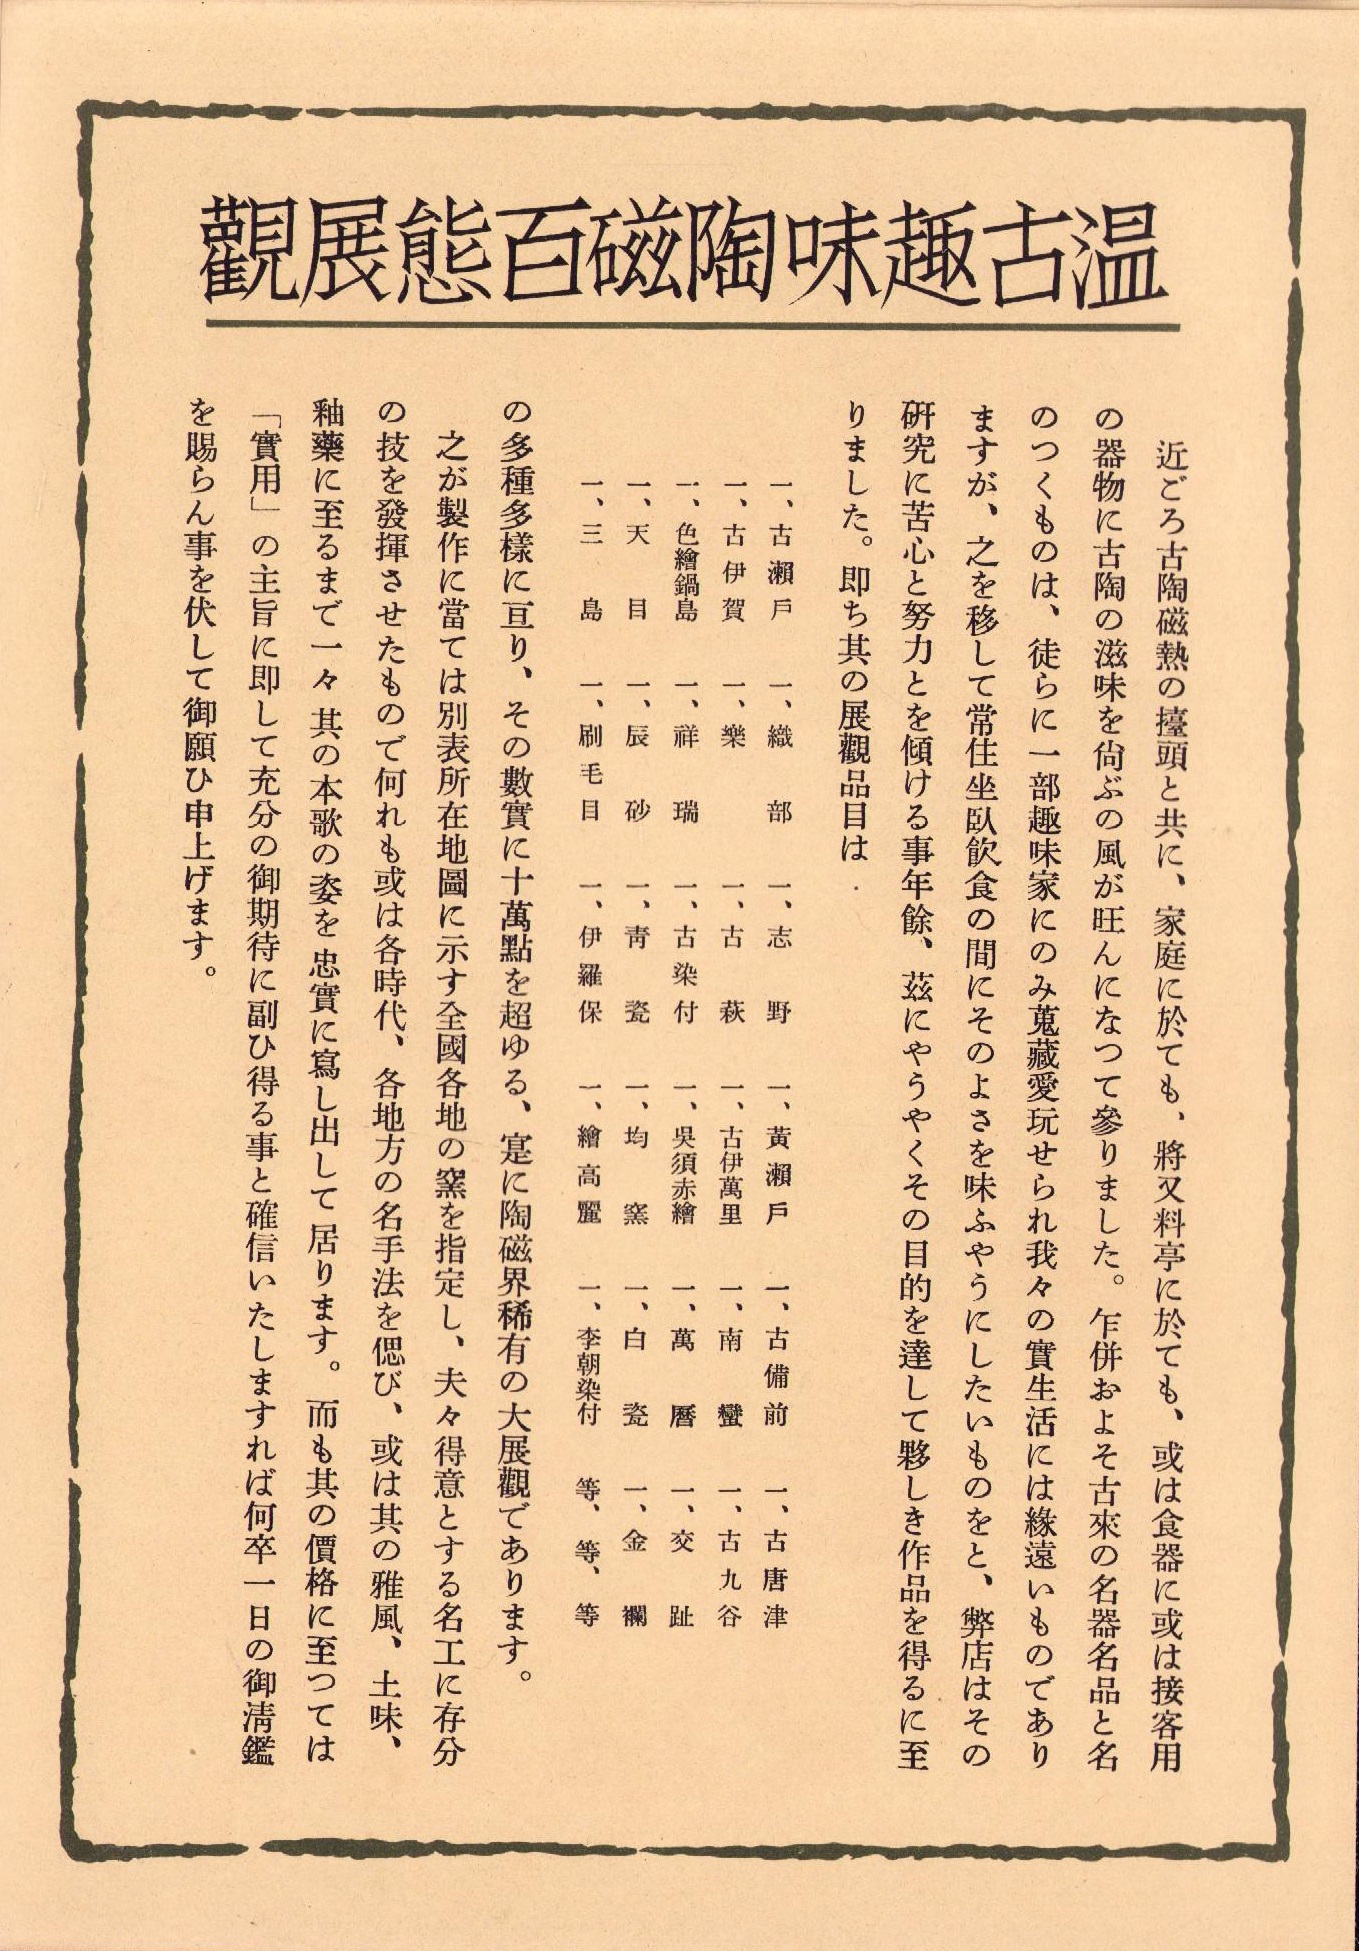 温古趣味陶磁百態展觀
近ごろ古陶磁熱の擡頭と共に、家庭に於ても、將又料亭に於ても、或は食器に或は接客用
の器物に古陶の滋味を尙ぶの風が旺んになつて參りました。乍併およそ古來の名器名品と名
のつくものは、徒らに一部趣味家にのみ蒐藏愛玩せられ我々の實生活には緣遠いものであり
ますが、之を移して常住坐臥飮食の間にそのよさを味ふやうにしたいものをと、弊店はその
硏究に苦心と努力とを傾ける事年餘、茲にやうやくその目的を達して夥しき作品を得るに至
りました。卽ち其の展觀品目は
一、古瀨戶 一、織部 一、志野 一、黃瀨戶 一、古備前 一、古唐津
一、古伊賀 一、樂 一、古萩 一、古伊萬里 一、南蠻 一、古九谷
一、色繪鍋島 一、祥瑞 一、古染付 一、吳須赤繪 一、萬曆 一、交趾
一、天目 一、辰砂 一、靑瓷 一、均窯 一、白瓷 一、金襴
一、三島 一、刷毛目 一、伊羅保 一、繪高麗 一、李朝染付 等、等、等
の多種多樣に亘り、その數實に十萬點を超ゆる、寔に陶磁界稀有の大展觀であります。
之が製作に當ては別表所在地圖に示す全國各地の窯を指定し、夫々得意とする名工に存分
の技を發揮させたもので何れも或は各時代、各地方の名手法を偲び、或は其の雅風、土味、
釉藥に至るまで一々其の本歌の姿を忠實に寫し出して居ります。而も其の價格に至つては
「實用」の主旨に卽して充分の御期待に副ひ得る事と確信いたしますれば何卒一日の御淸鑑
を賜らん事を伏して御願ひ申上げます。